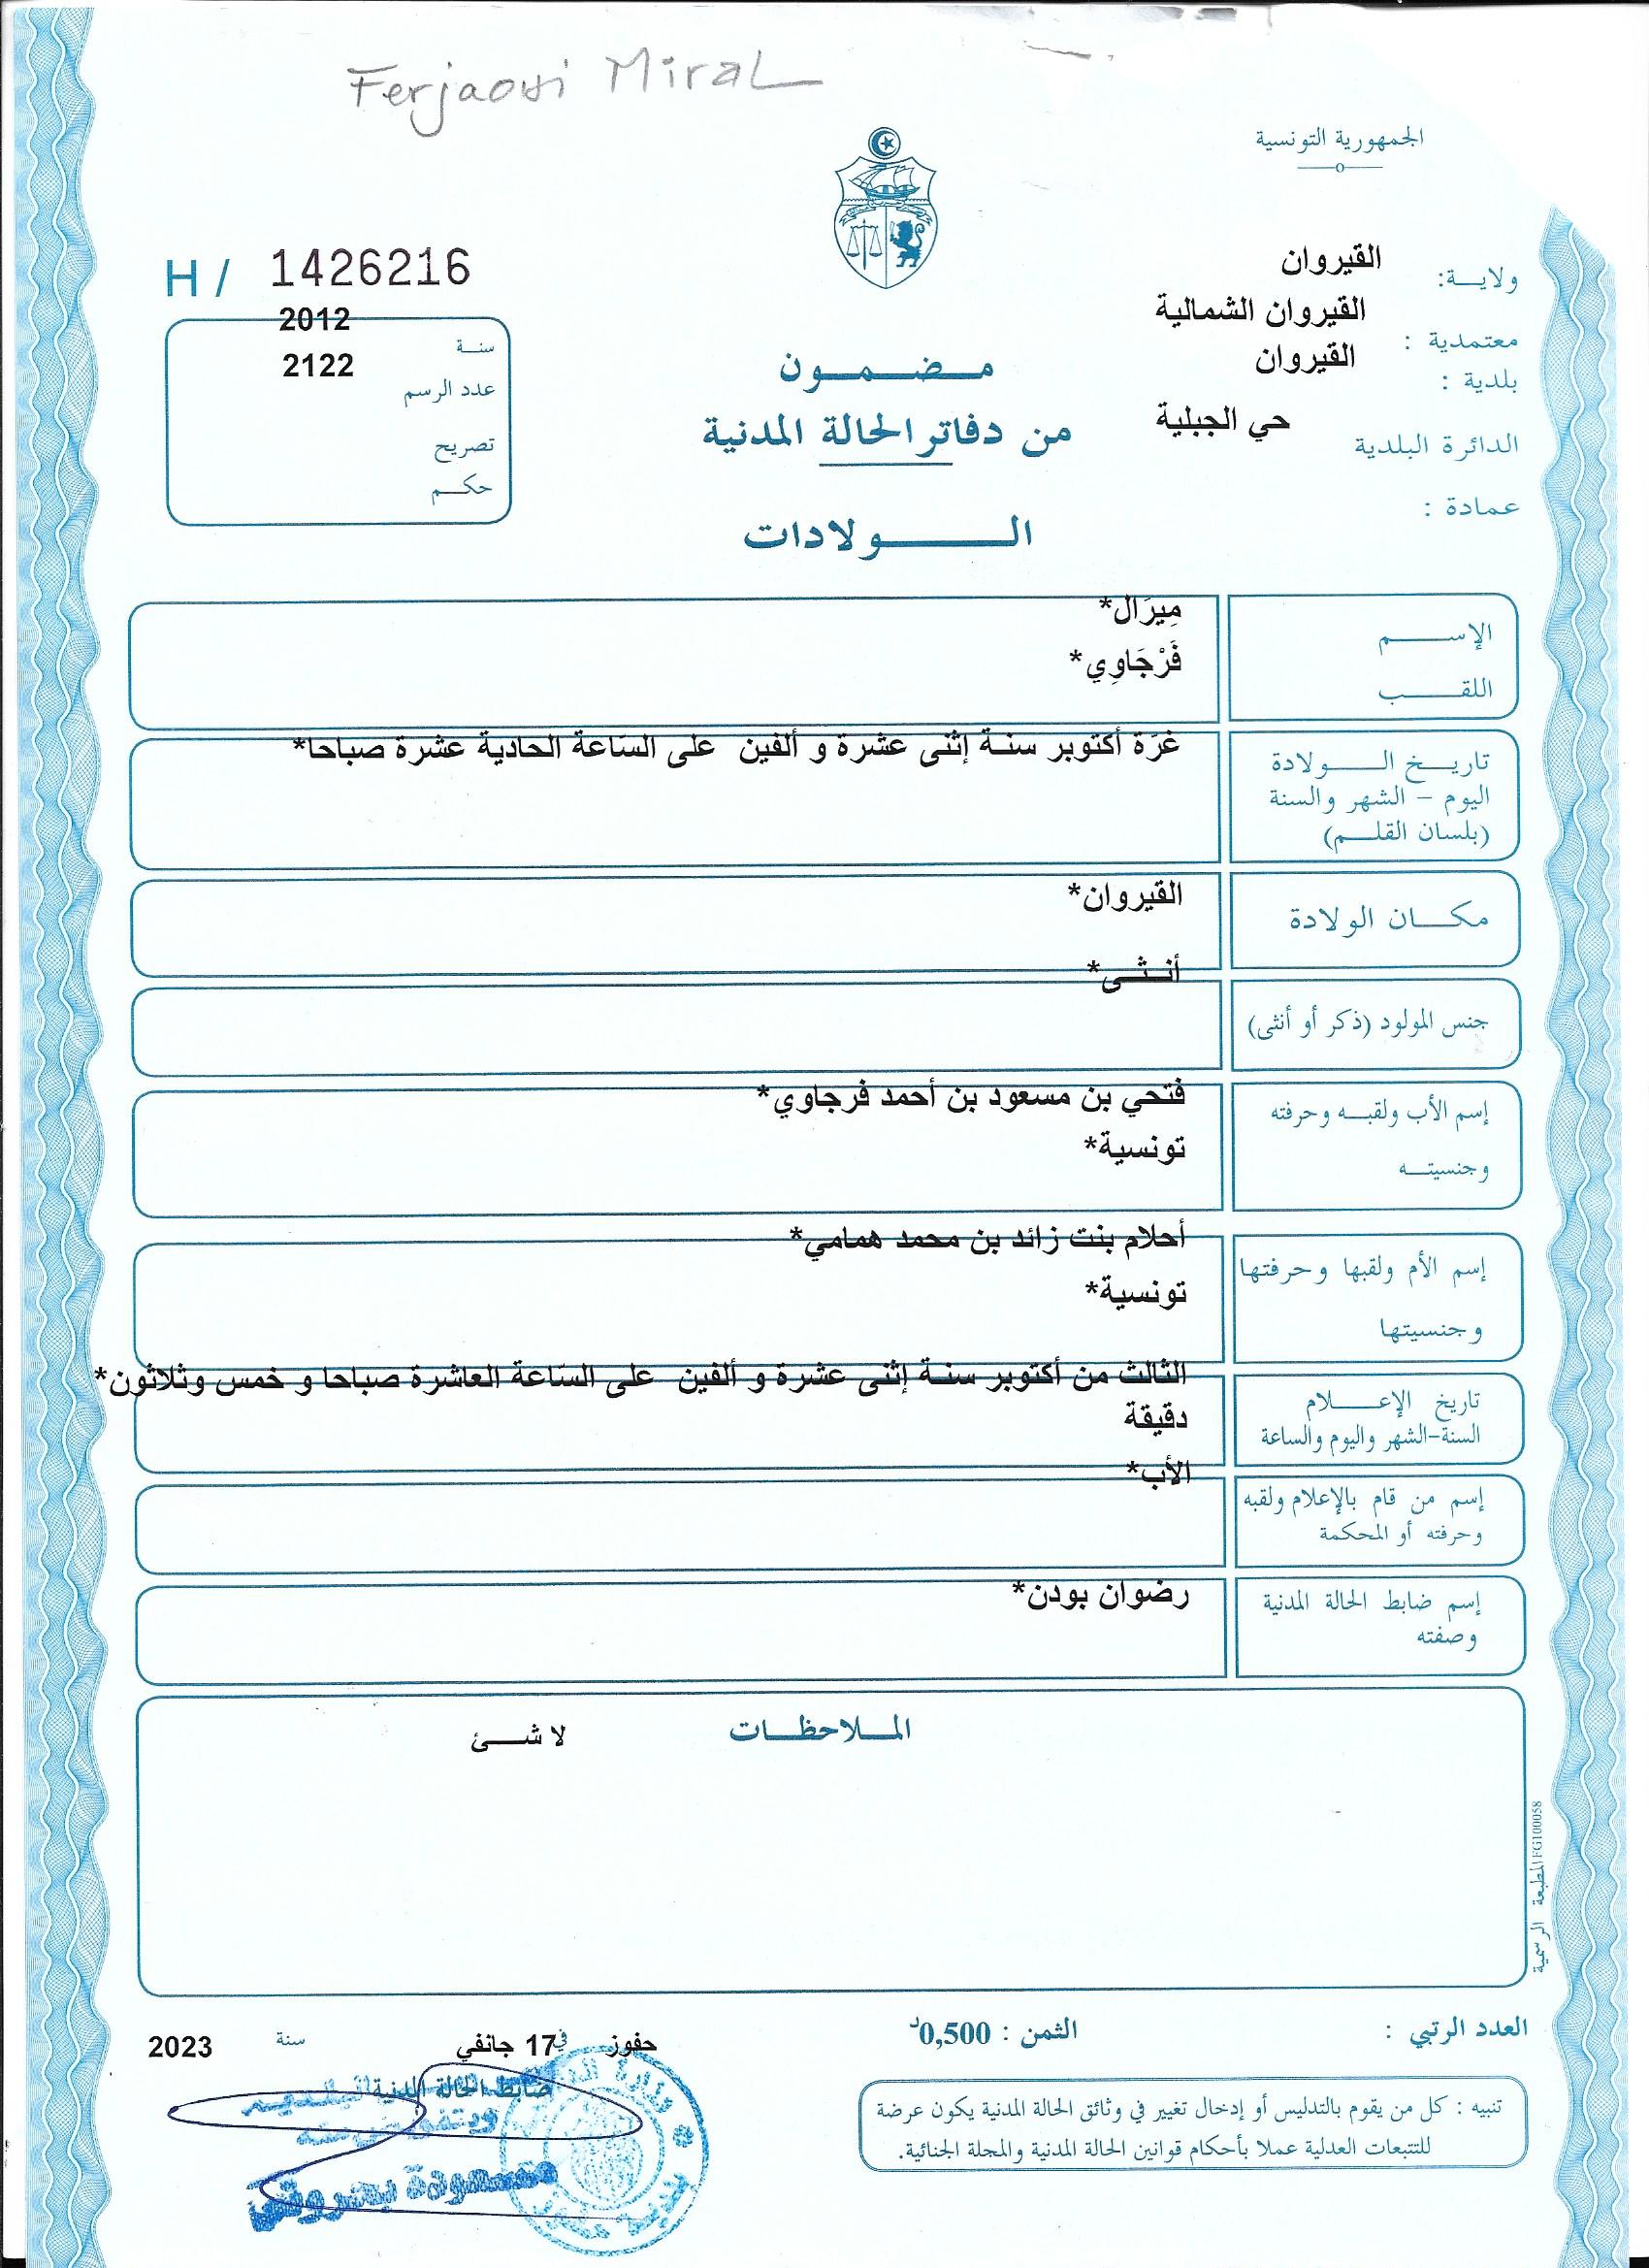 Ferjaoui Miral
الجمهورية التونسية
ولايــة: القيروان
معتمدية : القيروان الشمالية
بلدية : القيروان
الدائرة البلدية حي الجبلية
عمادة :
H / 1426216
سنـة 2012
عدد الرسم 2122
تصريح
حكـم
مـضـمـون
من دفاتر الحالة المدنية
الـولادات
الإسـم مِيرَال*
اللقـب فَرْجَاوِي*
تاريـخ الـولادة
اليوم – الشهر والسنة
(بلسان القلـم)
غرّة أكتوبر سنـة إثنى عشرة و ألفين على السّاعة الحادية عشرة صباحا*
مكـان الولادة القيروان*
جنس المولود (ذكر أو أنثى) أنـثـى*
إسم الأب ولقبـه وحرفته فتحي بن مسعود بن أحمد فرجاوي*
وجنسيتـه تونسية*
إسم الأم ولقبها وحرفتها أحلام بنت زائد بن محمد همامي*
وجنسيتها تونسية*
تاريخ الإعـلام
السنة-الشهر واليوم والساعة
الثالث من أكتوبر سنـة إثنى عشرة و ألفين على السّاعة العاشرة صباحا و خمس وثلاثون*
دقيقة
إسم من قام بالإعلام ولقبه
وحرفته أو المحكمة
الأب*
إسم ضابط الحالة المدنية
وصفته
رضوان بودن*
المـلاحظـات
لا شـئ
المطبعة الرسمية FG100058
العدد الرتبي :
الثمن : 0,500د
حفوز في 17 جانفي سنة 2023
ضابط الحالة المدنية
تنبيه : كل من يقوم بالتدليس أو إدخال تغيير في وثائق الحالة المدنية يكون عرضة
للتتبعات العدلية عملا بأحكام قوانين الحالة المدنية والمجلة الجنائية.